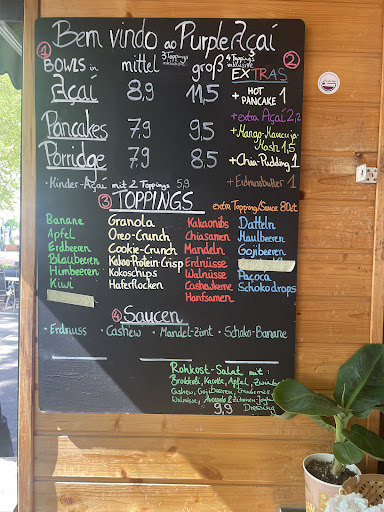 Bem vindo ao Purple Açaí
① BOWLS in mittel 3 Toppings inklusive groß 4 Toppings inklusive
Açai 8,9 11,5
Pancakes 7,9 9,5
Porridge 7,9 8,5
• Kinder-Açai mit 2 Toppings 5,9
②
EXTRAS
+ HOT PANCAKE 1
+ extra Açaí 2,2
+ Mango-Maracuja Mash 1,5
+ Chia-Pudding 1
+ Erdnussbutter 1
③ TOPPINGS
extra Topping/Sauce 80ct.
Banane
Apfel
Erdbeeren
Blaubeeren
Himbeeren
Kiwi
Granola
Oreo-Crunch
Cookie-Crunch
Kakao-Protein-Crisp
Kokoschips
Haferflocken
Kakaonibs
Chiasamen
Mandeln
Erdnüsse
Walnüsse
Cashewkerne
Hanfsamen
Datteln
Maulbeeren
Gojibeeren
Paçoca
Schokodrops
④ Saucen
• Erdnuss • Cashew • Mandel-Zimt • Schoko-Banane
Rohkost-Salat mit:
Brokkoli, Karotte, Apfel,
Cashew, Gojibeeren,
Walnüsse, Avocado & Zitronen-
9,9 Dressing